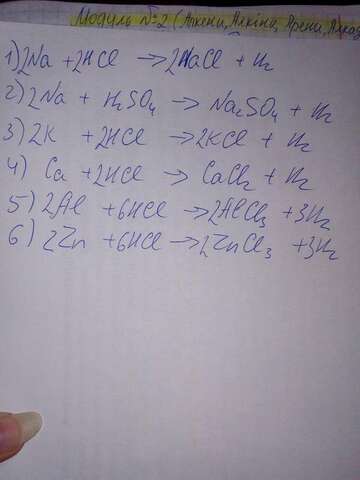 Модуль №2 (Алкени, Алкіни, Арени, Алкад
1) 2Na + 2HCl → 2NaCl + H₂
2) 2Na + H₂SO₄ → Na₂SO₄ + H₂
3) 2K + 2HCl → 2KCl + H₂
4) Ca + 2HCl → CaCl₂ + H₂
5) 2Al + 6HCl → 2AlCl₃ + 3H₂
6) 2Zn + 6HCl → 2ZnCl₃ + 3H₂